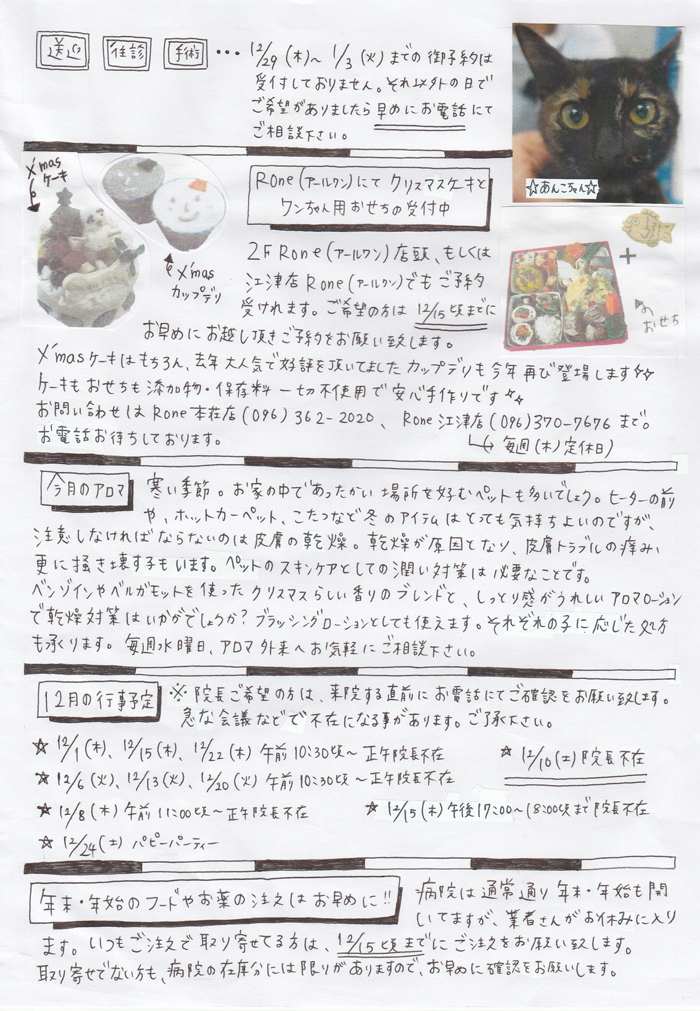 送迎 往診 手術 … 12/29(木)～ 1/3(火)までの御予約は
受付しておりません。それ以外の日で
ご希望がありましたら早めにお電話にて
ご相談下さい。
☆あんこちゃん☆
X'mas
ケーキ
X'mas
カップデリ
Rone(アールワン)にて クリスマスケーキと
ワンちゃん用おせちの受付中
2F Rone(アールワン)店頭、もしくは
江津店Rone(アールワン)でもご予約
受けれます。ご希望の方は 12/15頃までに
お早めにお越し頂きご予約をお願い致します。
+
おせち
X'masケーキはもちろん、去年大人気で好評を頂いてましたカップデリも今年再び登場します☆☆
ケーキもおせちも添加物・保存料一切不使用で安心手作りです☆☆
お問い合わせはRone本荘店(096)362-2020、Rone江津店(096)370-7676まで。
お電話お待ちしております。
毎週(木)定休日)
今月のアロマ
寒い季節。お家の中であったかい場所を好むペットも多いでしょう。ヒーターの前
や、ホットカーペット、こたつなど冬のアイテムはとっても気持ちよいのですが、
注意しなければならないのは皮膚の乾燥。乾燥が原因となり、皮膚トラブルの痒み、
更に掻き壊す子もいます。ペットのスキンケアとしての潤い対策は必要なことです。
ベンゾインやベルガモットを使ったクリスマスらしい香りのブレンドと、しっとり感がうれしいアロマローション
で乾燥対策はいかがでしょうか？ブラッシングローションとしても使えます。それぞれの子に応じた処方
も承ります。毎週水曜日、アロマ外来へお気軽にご相談下さい。
12月の行事予定
※院長ご希望の方は、来院する直前にお電話にてご確認をお願い致します。
急な会議などで不在になる事があります。ご了承下さい。
☆12/1(木)、12/15(木)、12/22(木)午前10:30頃～正午院長不在
☆12/10(土)院長不在
☆12/6(火)、12/13(火)、12/20(火)午前10:30頃～正午院長不在
☆12/8(木)午前11:00頃～正午院長不在
☆12/15(木)午後17:00～18:00頃まで院長不在
☆12/24(土)パピーパーティー
年末・年始のフードやお薬の注文はお早めに!!
病院は通常通り年末・年始も開
いてますが、業者さんがお休みに入り
ます。いつもご注文で取り寄せてる方は、12/15頃までにご注文をお願い致します。
取り寄せでない方も、病院の在庫分には限りがありますので、お早めに確認をお願いします。